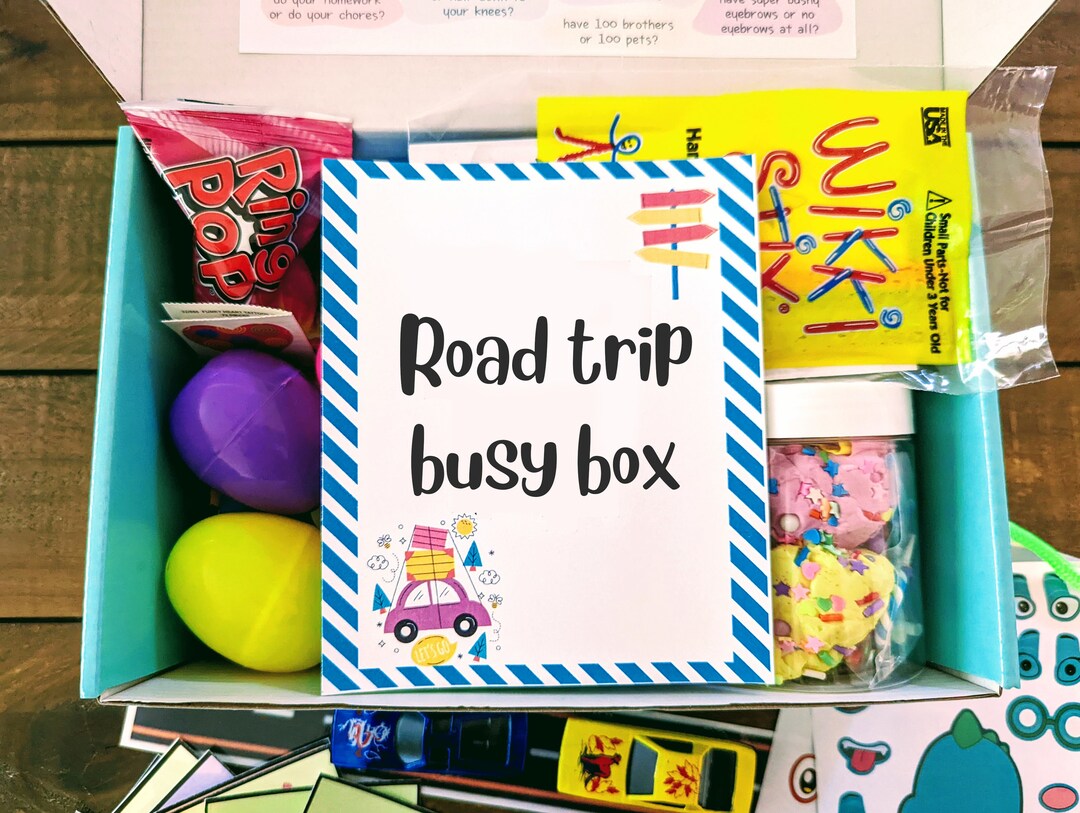 do your homework
or do your chores?
your knees?
have 100 brothers
or 100 pets?
have super bushy
eyebrows or no
eyebrows at all?
Ring
Pop
Wikki
Stix
MADE IN THE
USA
Small Parts-Not for
Children Under 3 Years Old
Road trip
busy box
LET'S GO